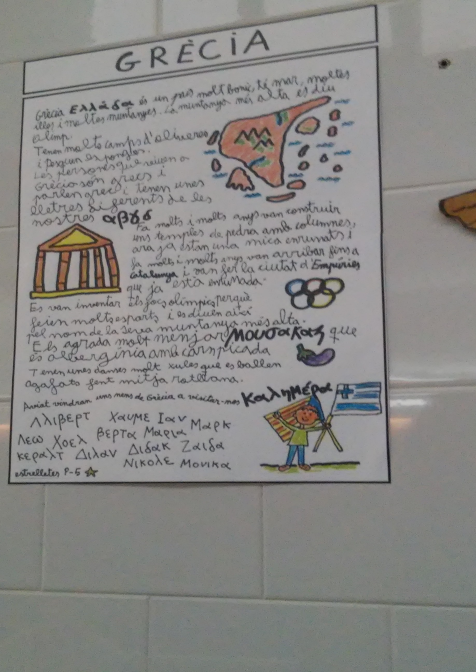 GRÈCIA
Grècia Ελλάδα és un país molt bonic, té mar, moltes
illes i moltes muntanyes. La muntanya més alta es diu
Olimp.
Tenen molts camps d'oliveres
i pesquen esponges.
Les persones que viuen a
Grècia són grecs i
parlen grec i tenen unes
lletres diferents de les
nostres αβγδ
Fa molts i molts anys van construir
uns temples de pedra amb columnes,
ara ja estan una mica enrunats i
fa molts i molts anys van arribar fins a
Catalunya i van fer la ciutat d'Empúries
que ja està enrunada.
Es van inventar els jocs olímpics perquè
feien molts esports i es diuen així
pel nom de la seva muntanya més alta.
Els agrada molt menjar Μουσακας que
és albergínia amb carn picada
Tenen unes danses molt xules que es ballen
agafats fent mitja rotllana.
Aviat vindran uns nens de Grècia a visitar-nos Καλημέρα
Λλιβερτ Χαυμε Ιαν Μαρκ
Λεω Χοελ Βερτα Μαρια
κεραλτ Διλαν Διδακ Ζαιδα
Νικολε Μονικα
estrelletes P-5